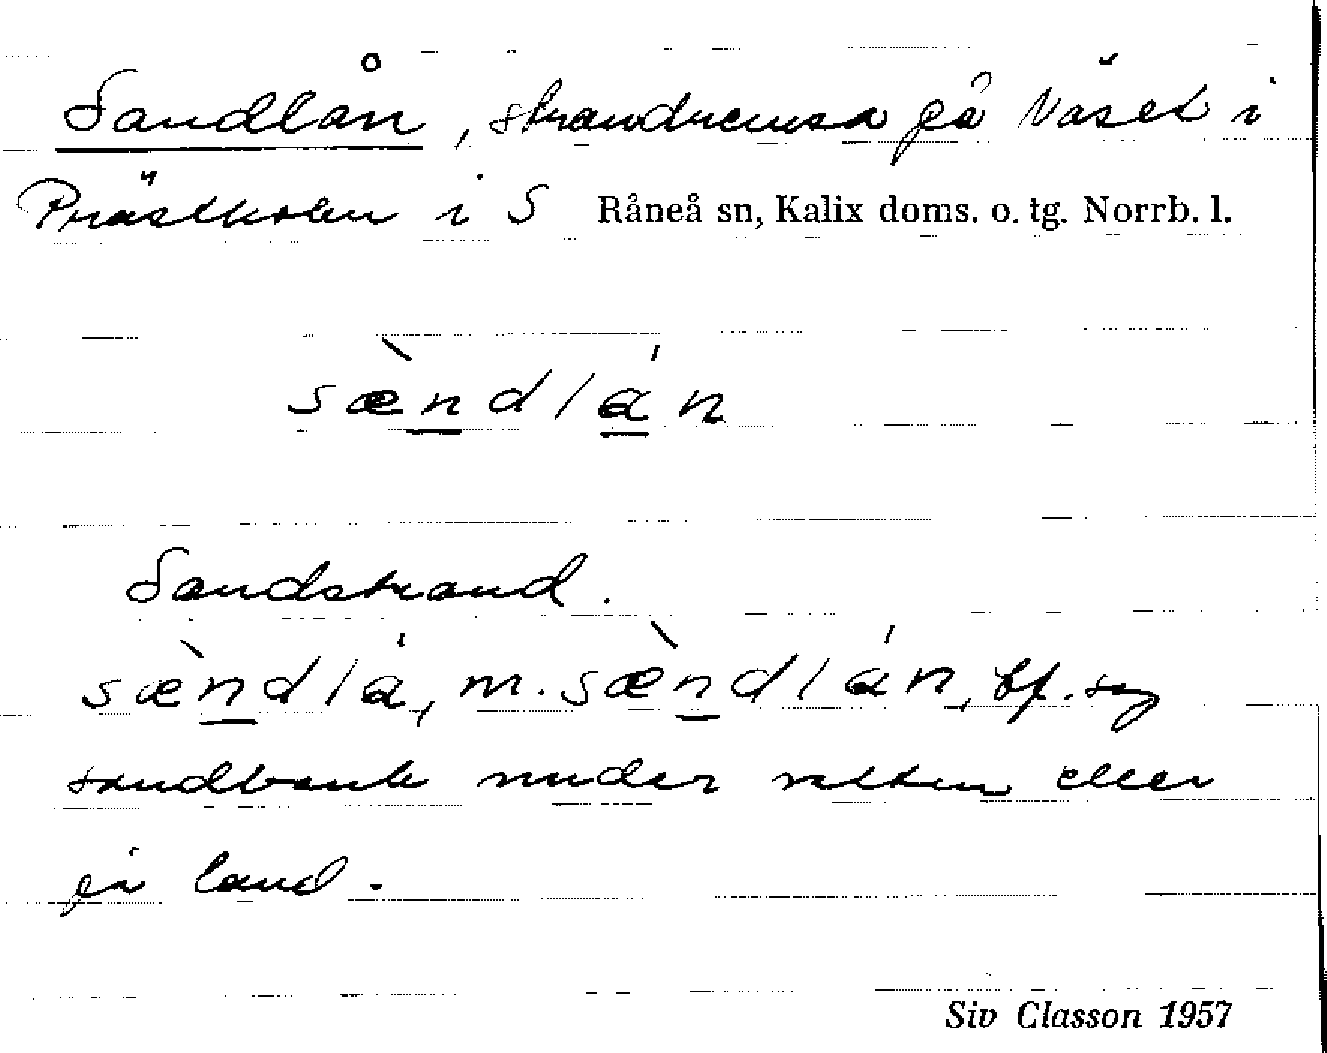 Sandlån, strandremsa på Näset i
Prästholm i S Råneå sn, Kalix doms. o. tg. Norrb. l.
sæ̀ndlán
Sandstrand.
sæ̀ndlá, m. sæ̀ndlán, bf. sg
sandbank under vatten eller
på land.
Siv Classon 1957